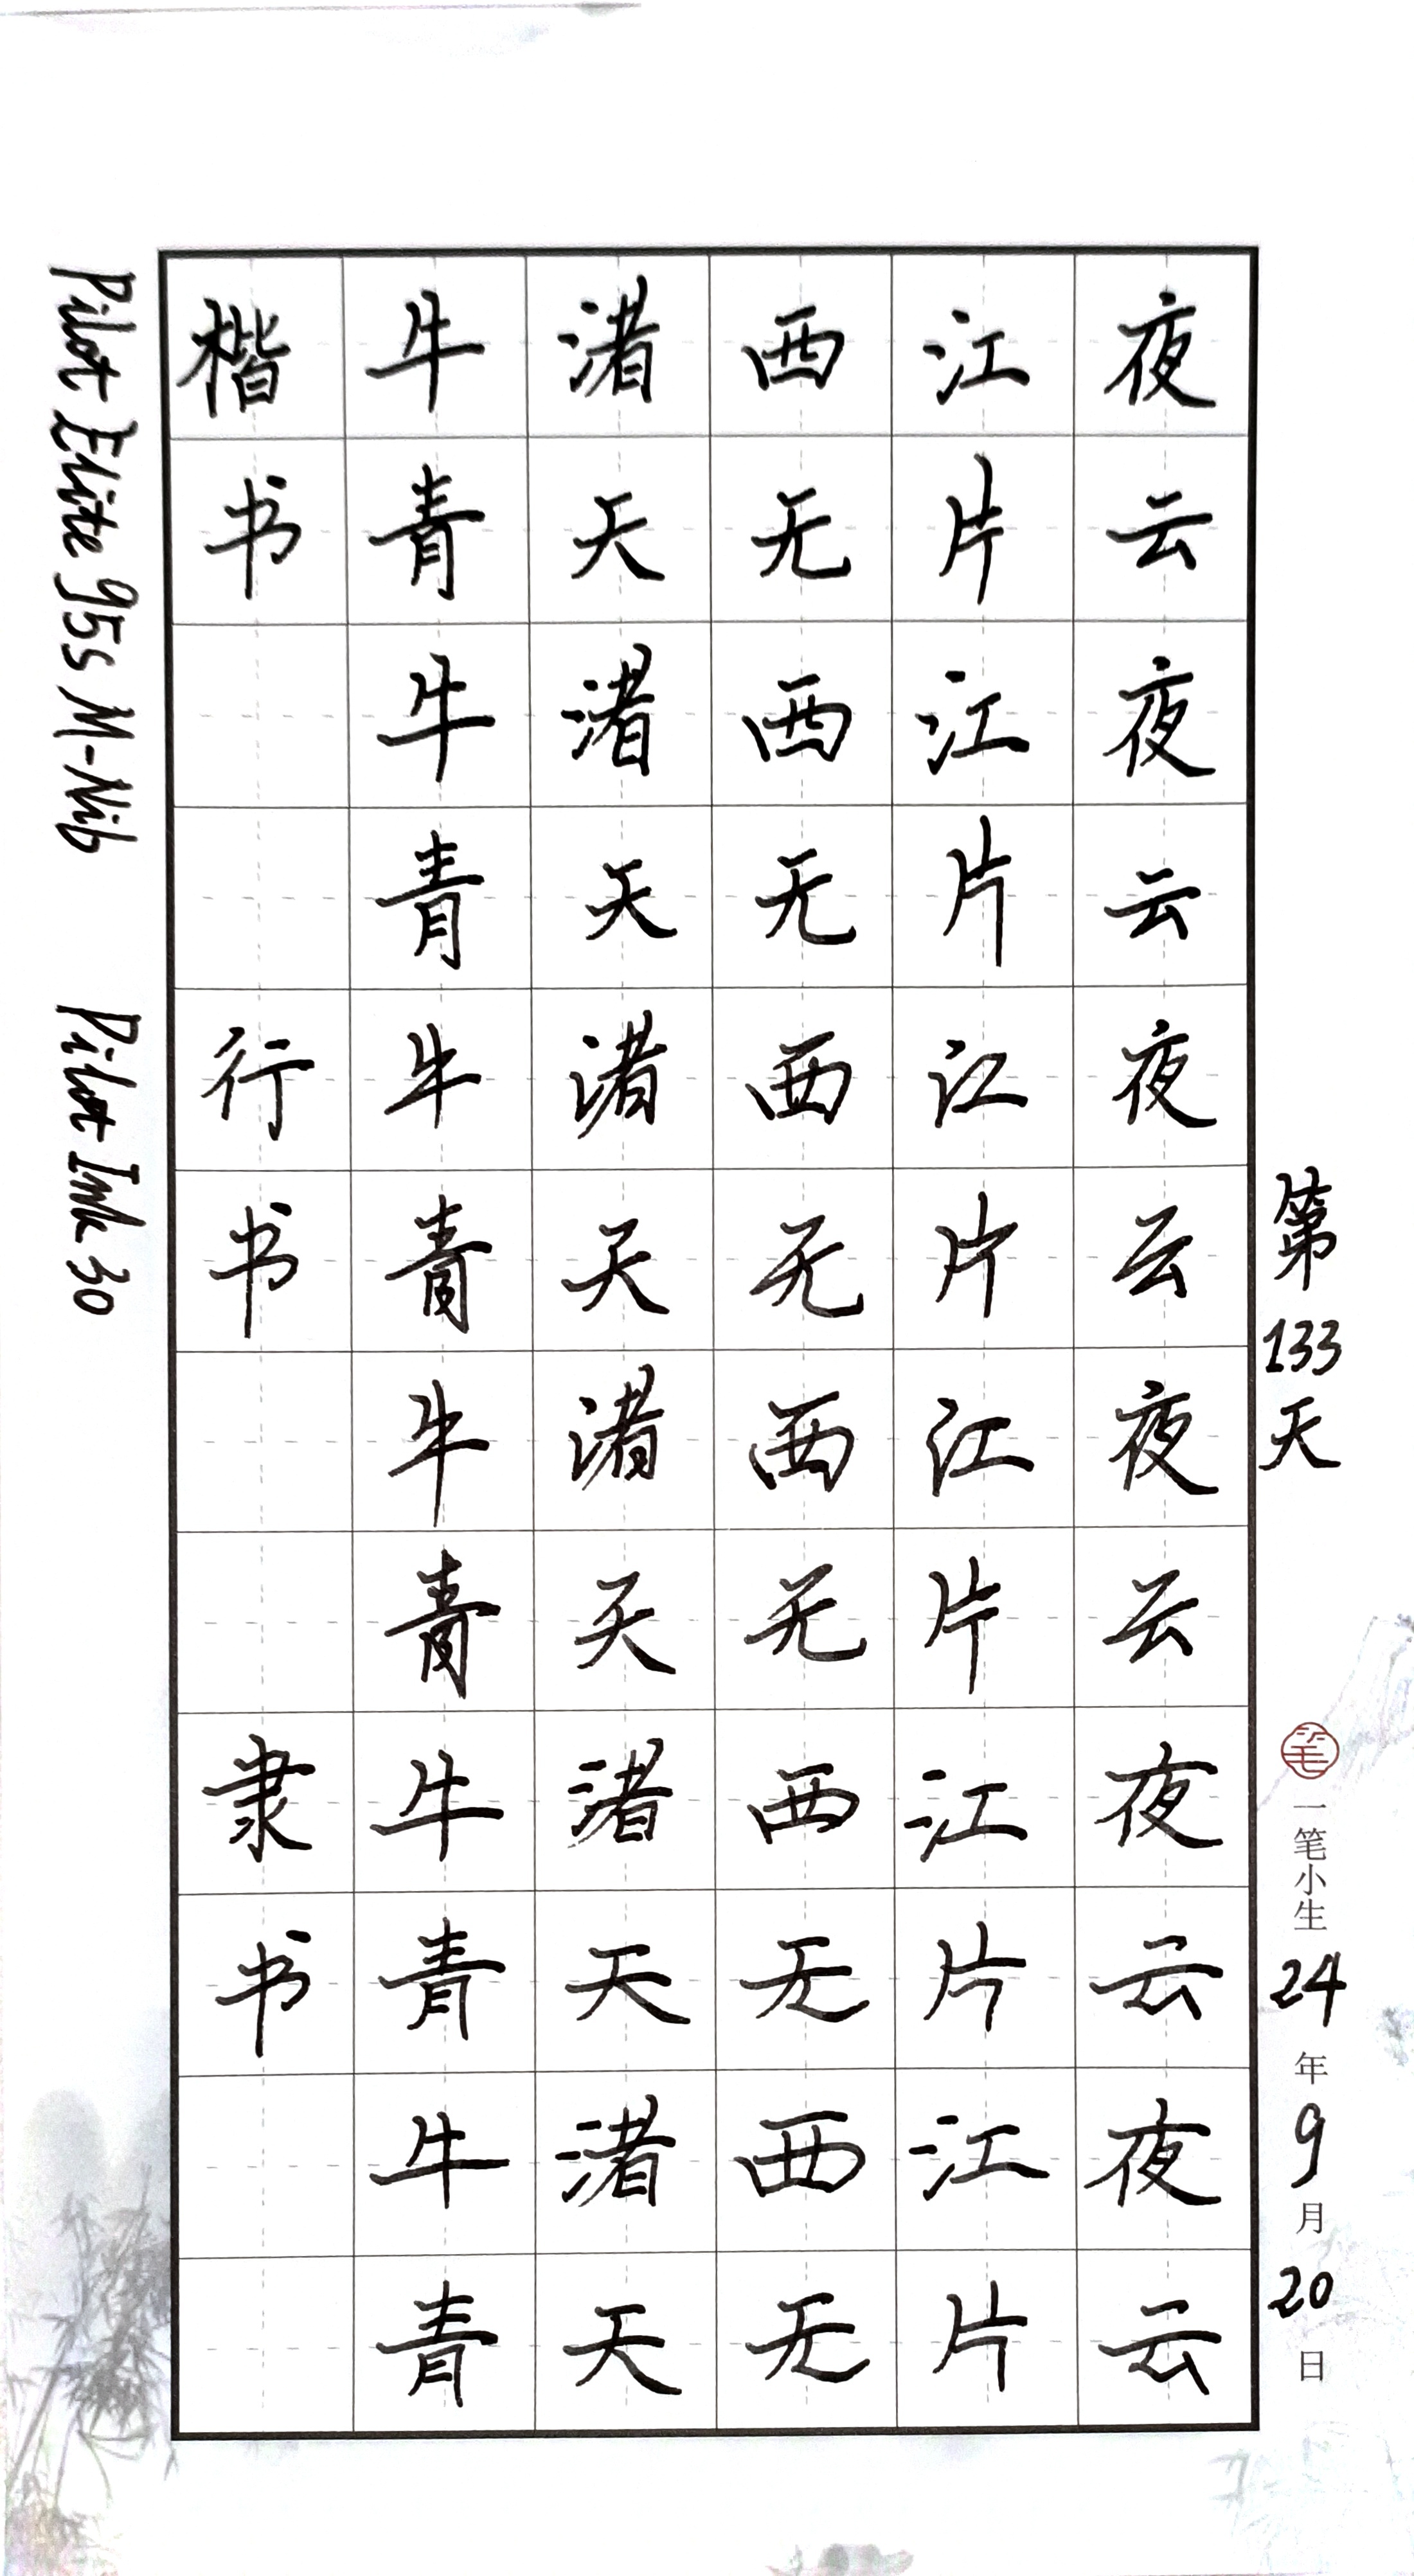 楷牛渚西江夜
书青天无片云
牛渚西江夜
青天无片云
行牛渚西江夜
书青天无片云
牛渚西江夜
青天无片云
隶牛渚西江夜
书青天无片云
牛渚西江夜
青天无片云
第133天
笔
一笔小生
24年9月20日
Pilot Elite 95s M-Nib Pilot Ink 30